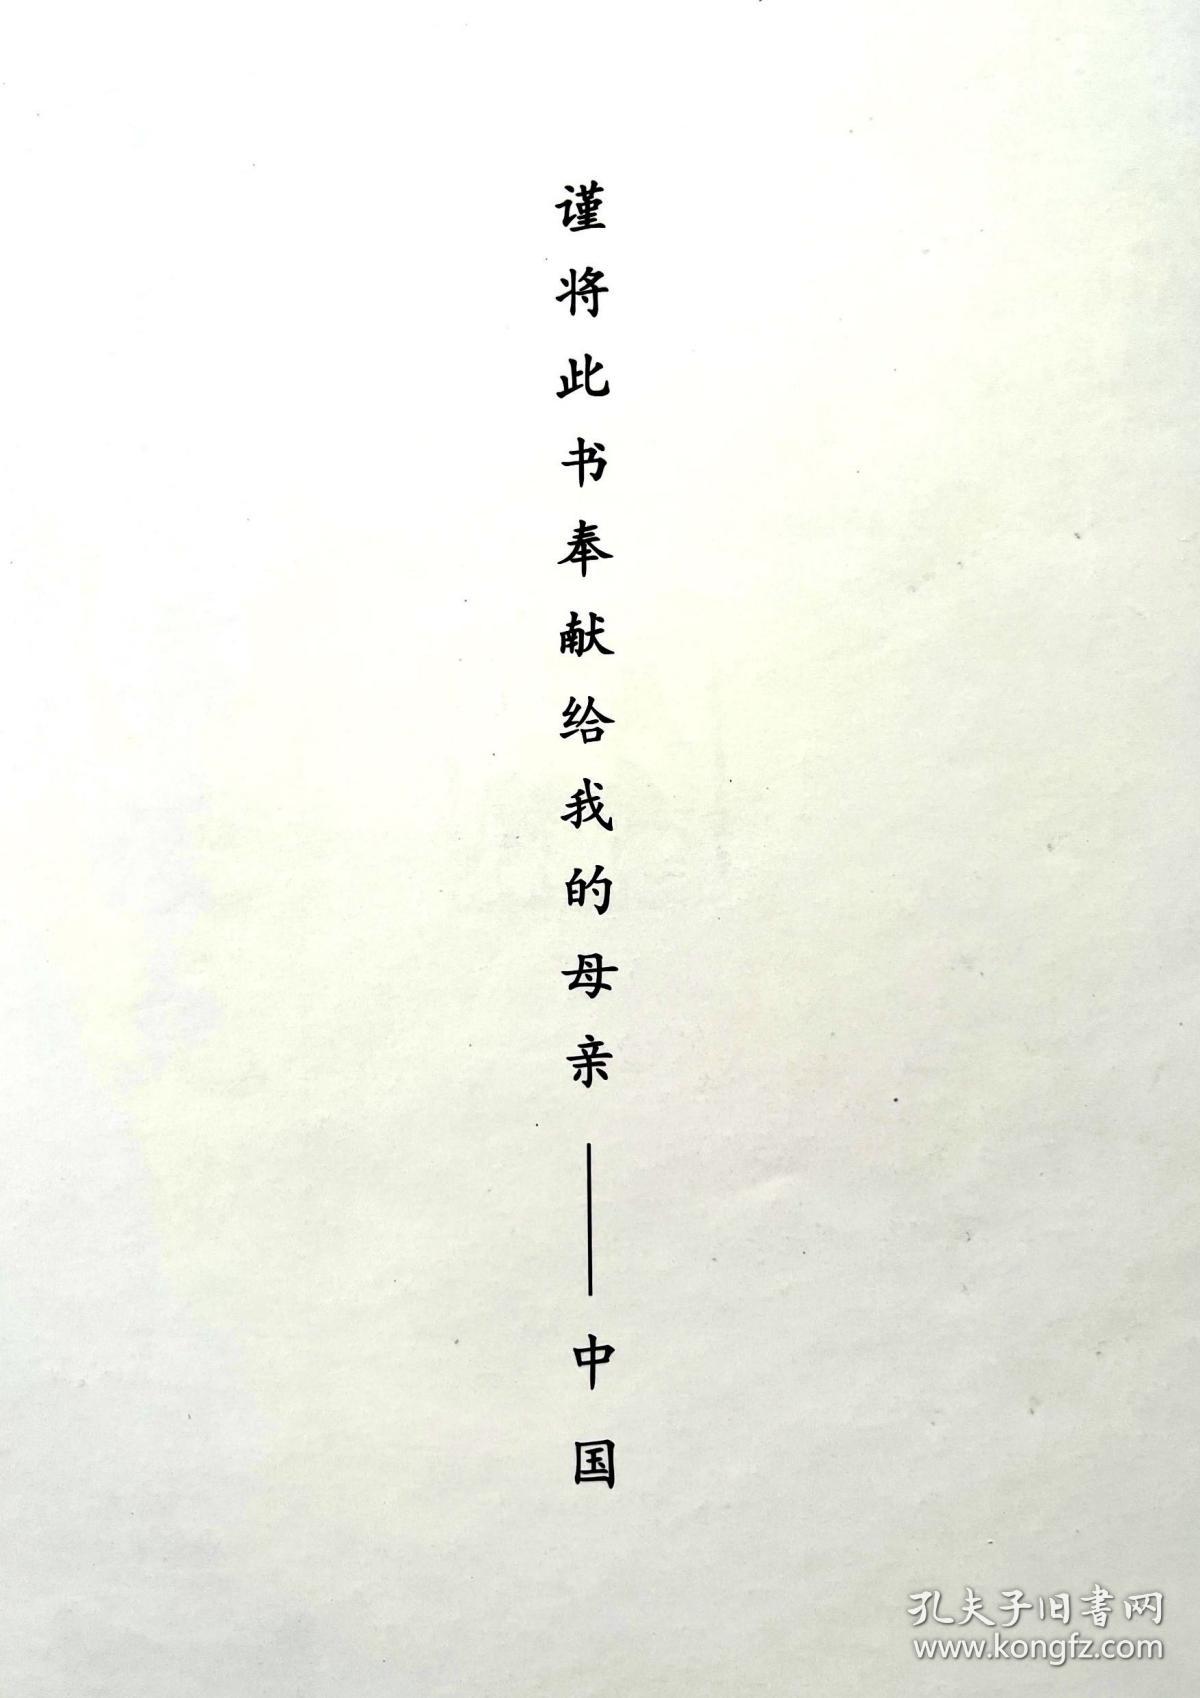 谨将此书奉献给我的母亲——中国
孔夫子旧書网
www.kongfz.com